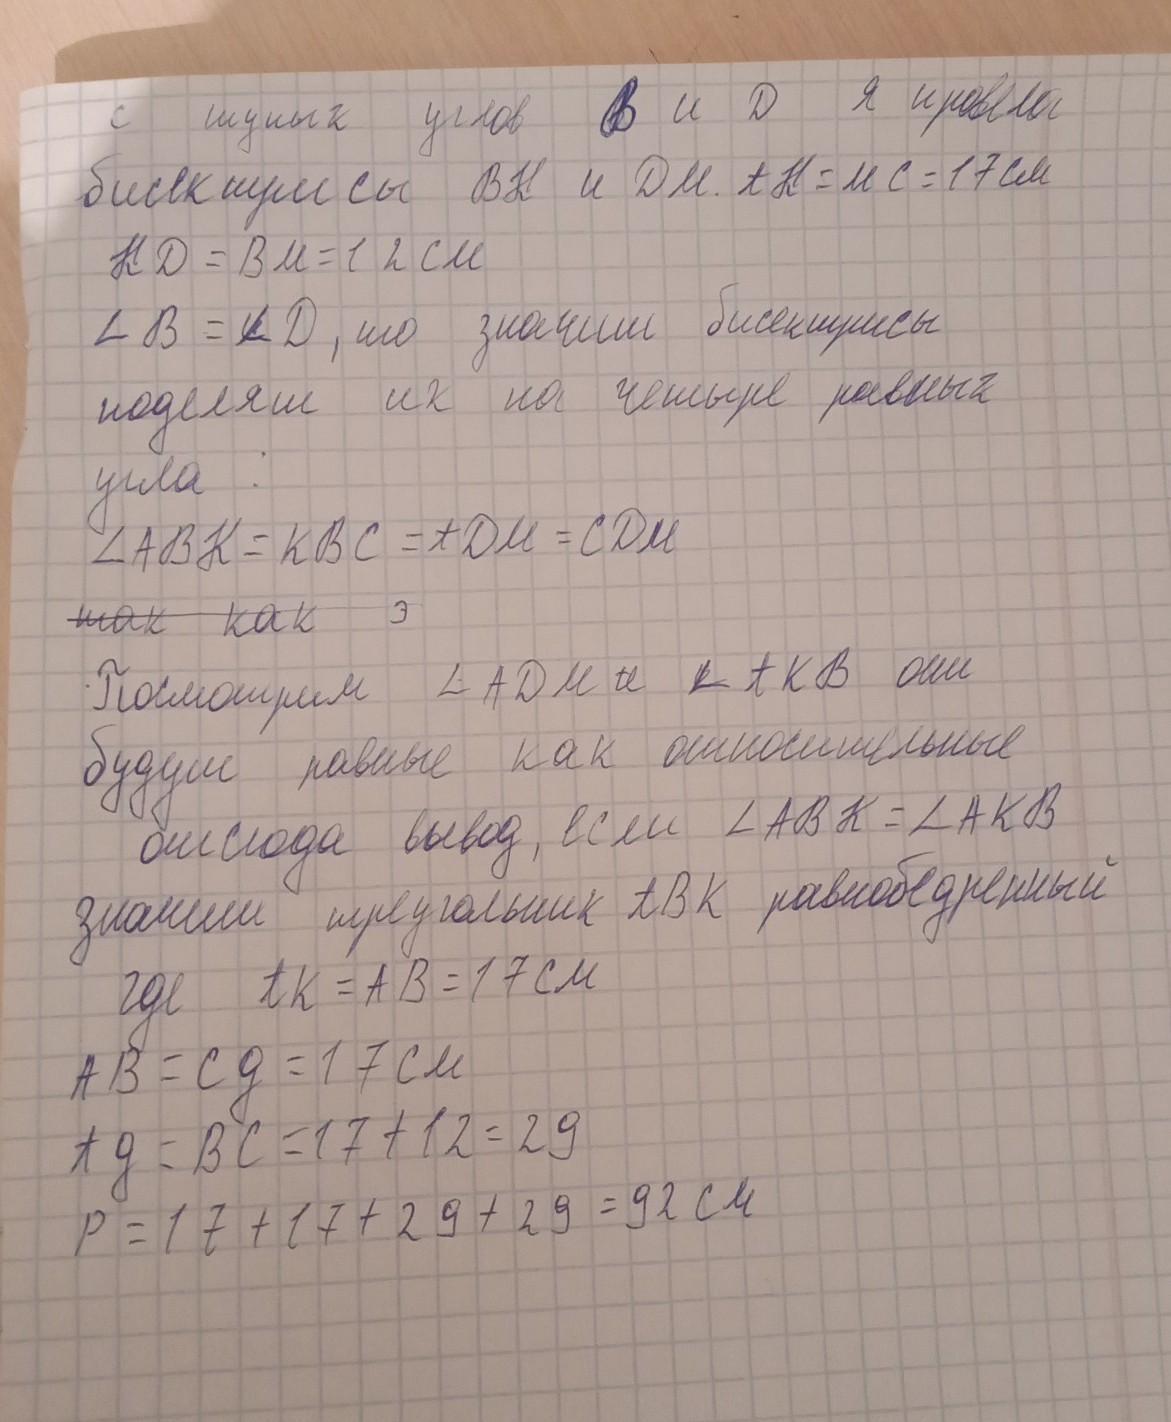 с тупых углов В и D я провела
бисектрисы ВК и DM. AK=MC=17см
KD=BM=12см
∠B=∠D, то значит бисектрисы
поделят их на четыре равных
угла :
∠ABK=KBC=ADM=CDM
так как э
Посмотрим ∠ADM и ∠AKB они
будут равные как относительные
отсюда вывод, если ∠ABK=∠AKB
значит треугольник ABK равнобедренный
где AK=AB=17см
AB=Cg=17см
Ag=BC=17+12=29
P=17+17+29+29=92см